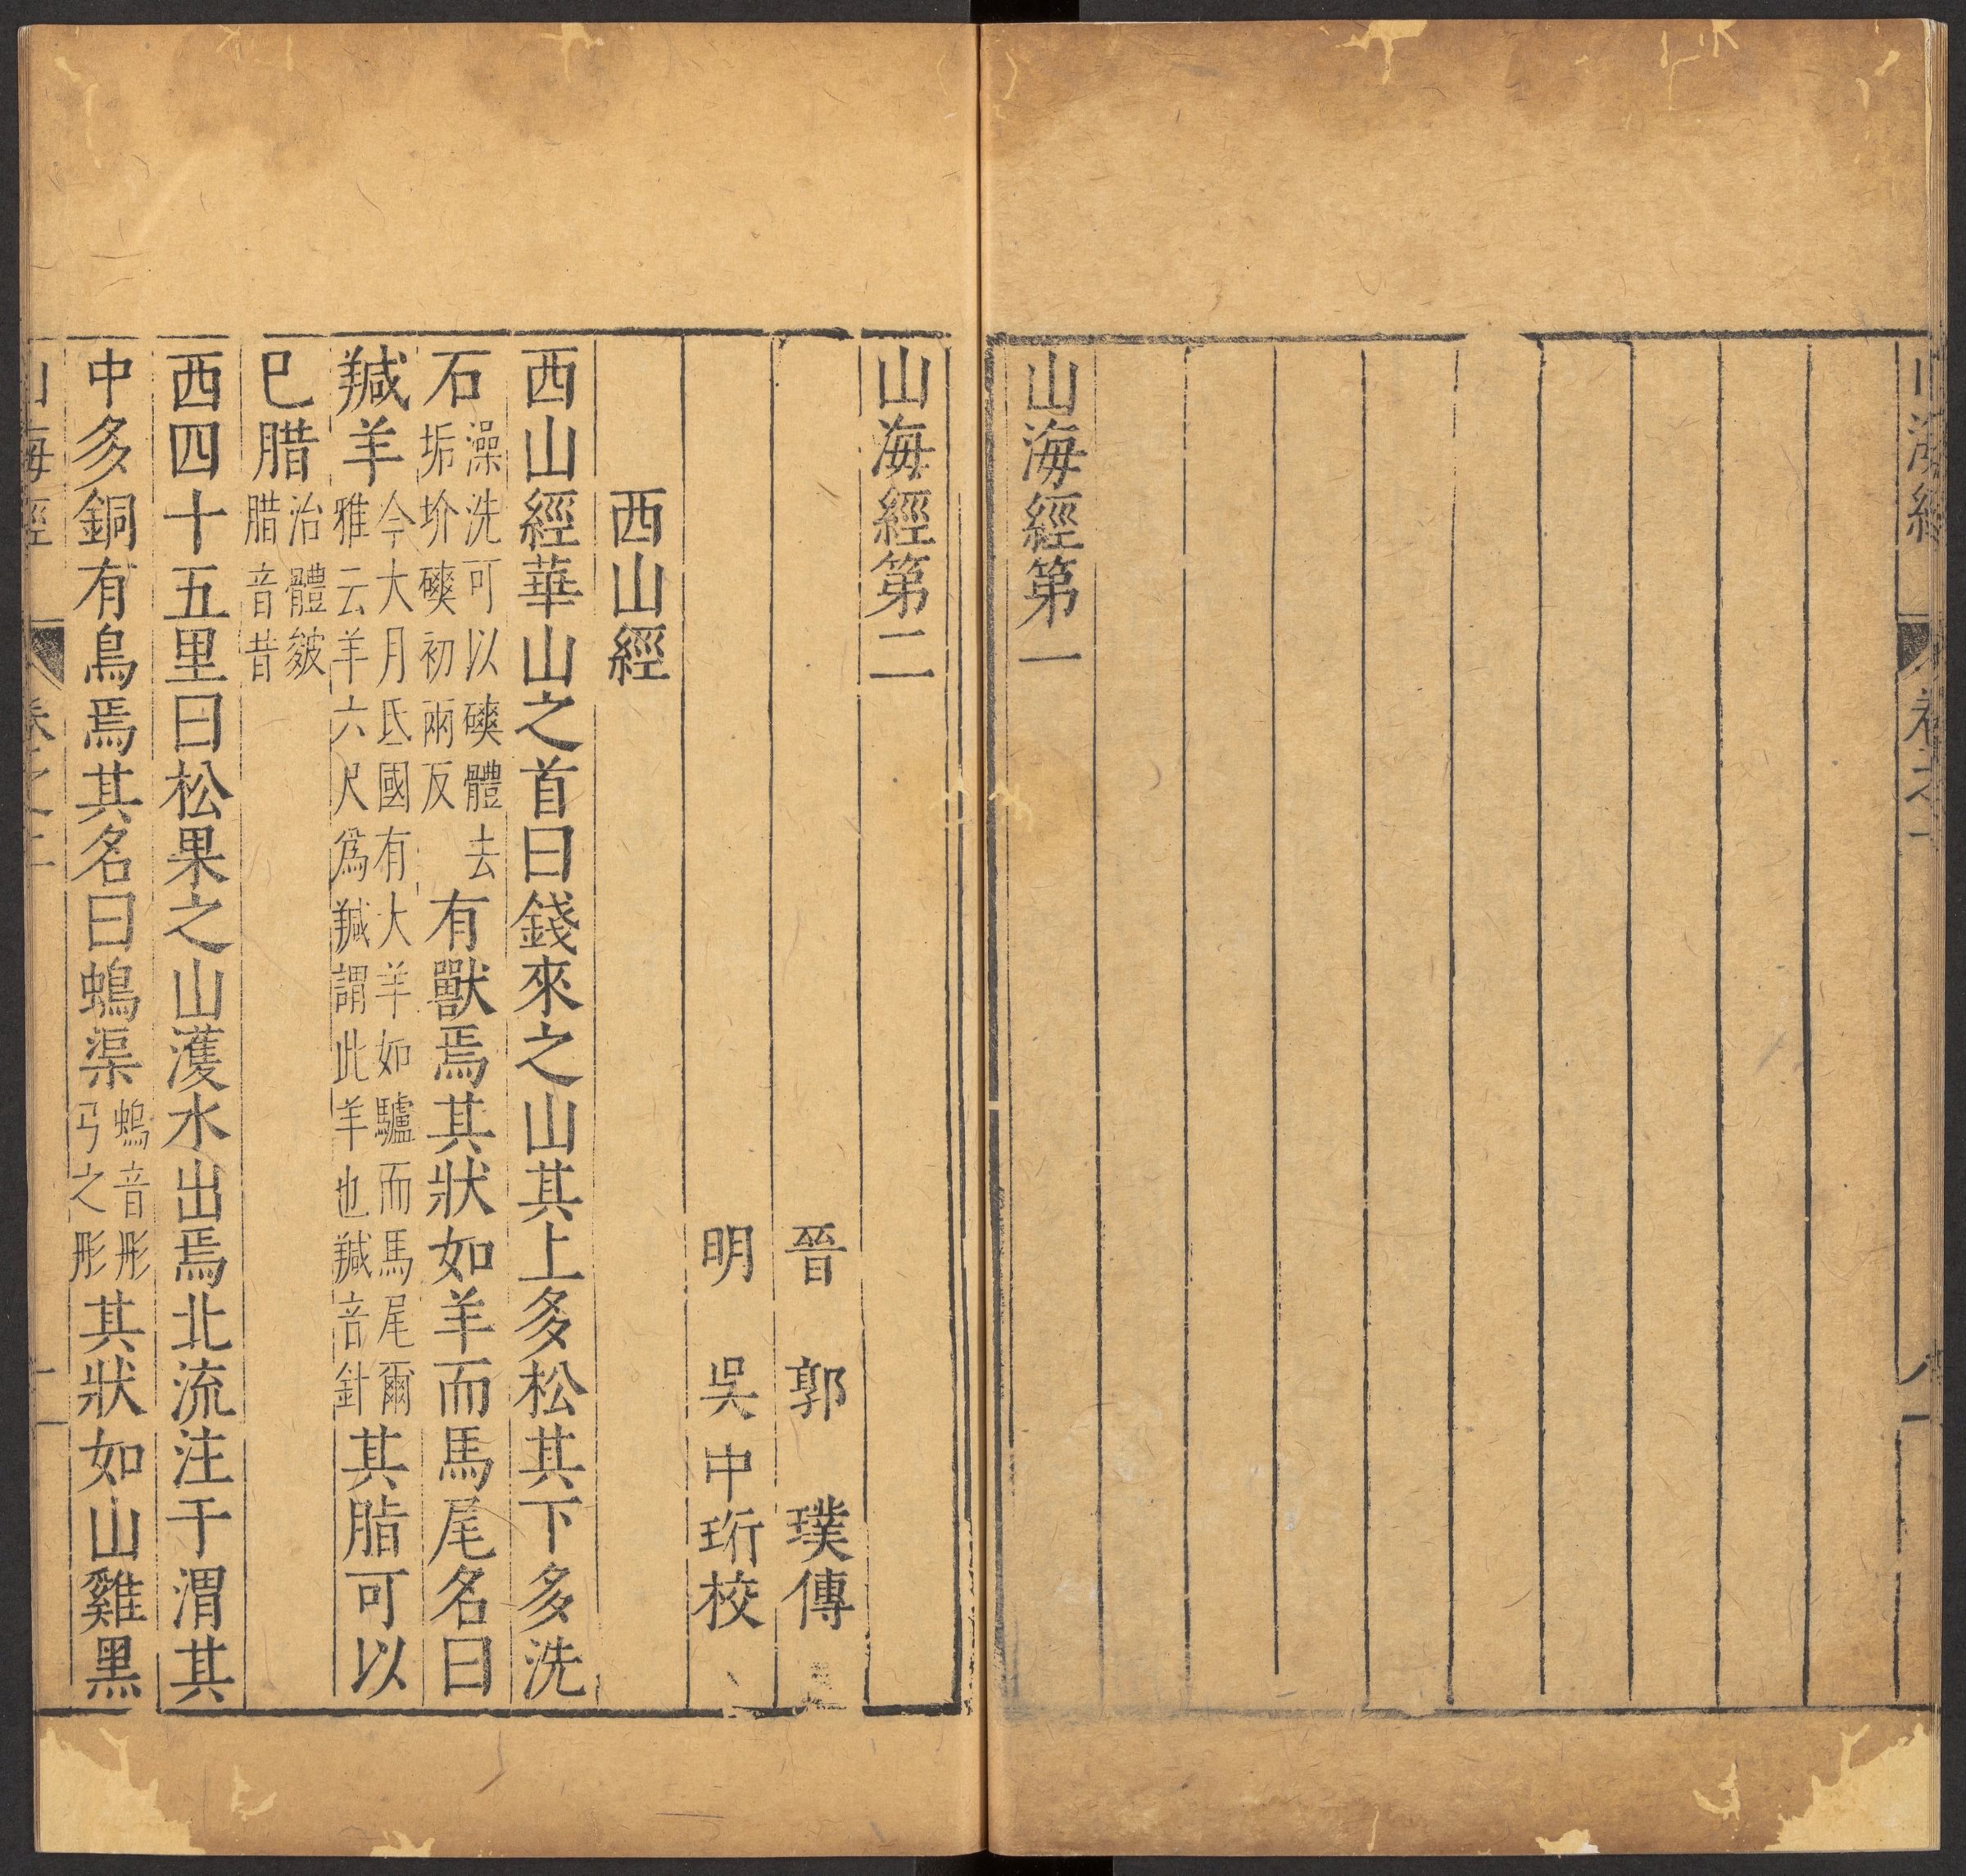 山海經
卷之一
山海經第一
山海經第二
晉 郭 璞傳
明 吳中珩校
西山經
西山經華山之首曰錢來之山其上多松其下多洗
石澡洗可以磢體去垢圿磢初兩反有獸焉其狀如羊而馬尾名曰
羬羊今大月氐國有大羊如驢而馬尾爾雅云羊六尺爲羬謂此羊也羬音針其脂可以
已腊治體皴腊音昔
西四十五里曰松果之山濩水出焉北流注于渭其
中多銅有鳥焉其名曰䳋渠䳋音彤弓之彤其狀如山雞黑
山海經
卷之二